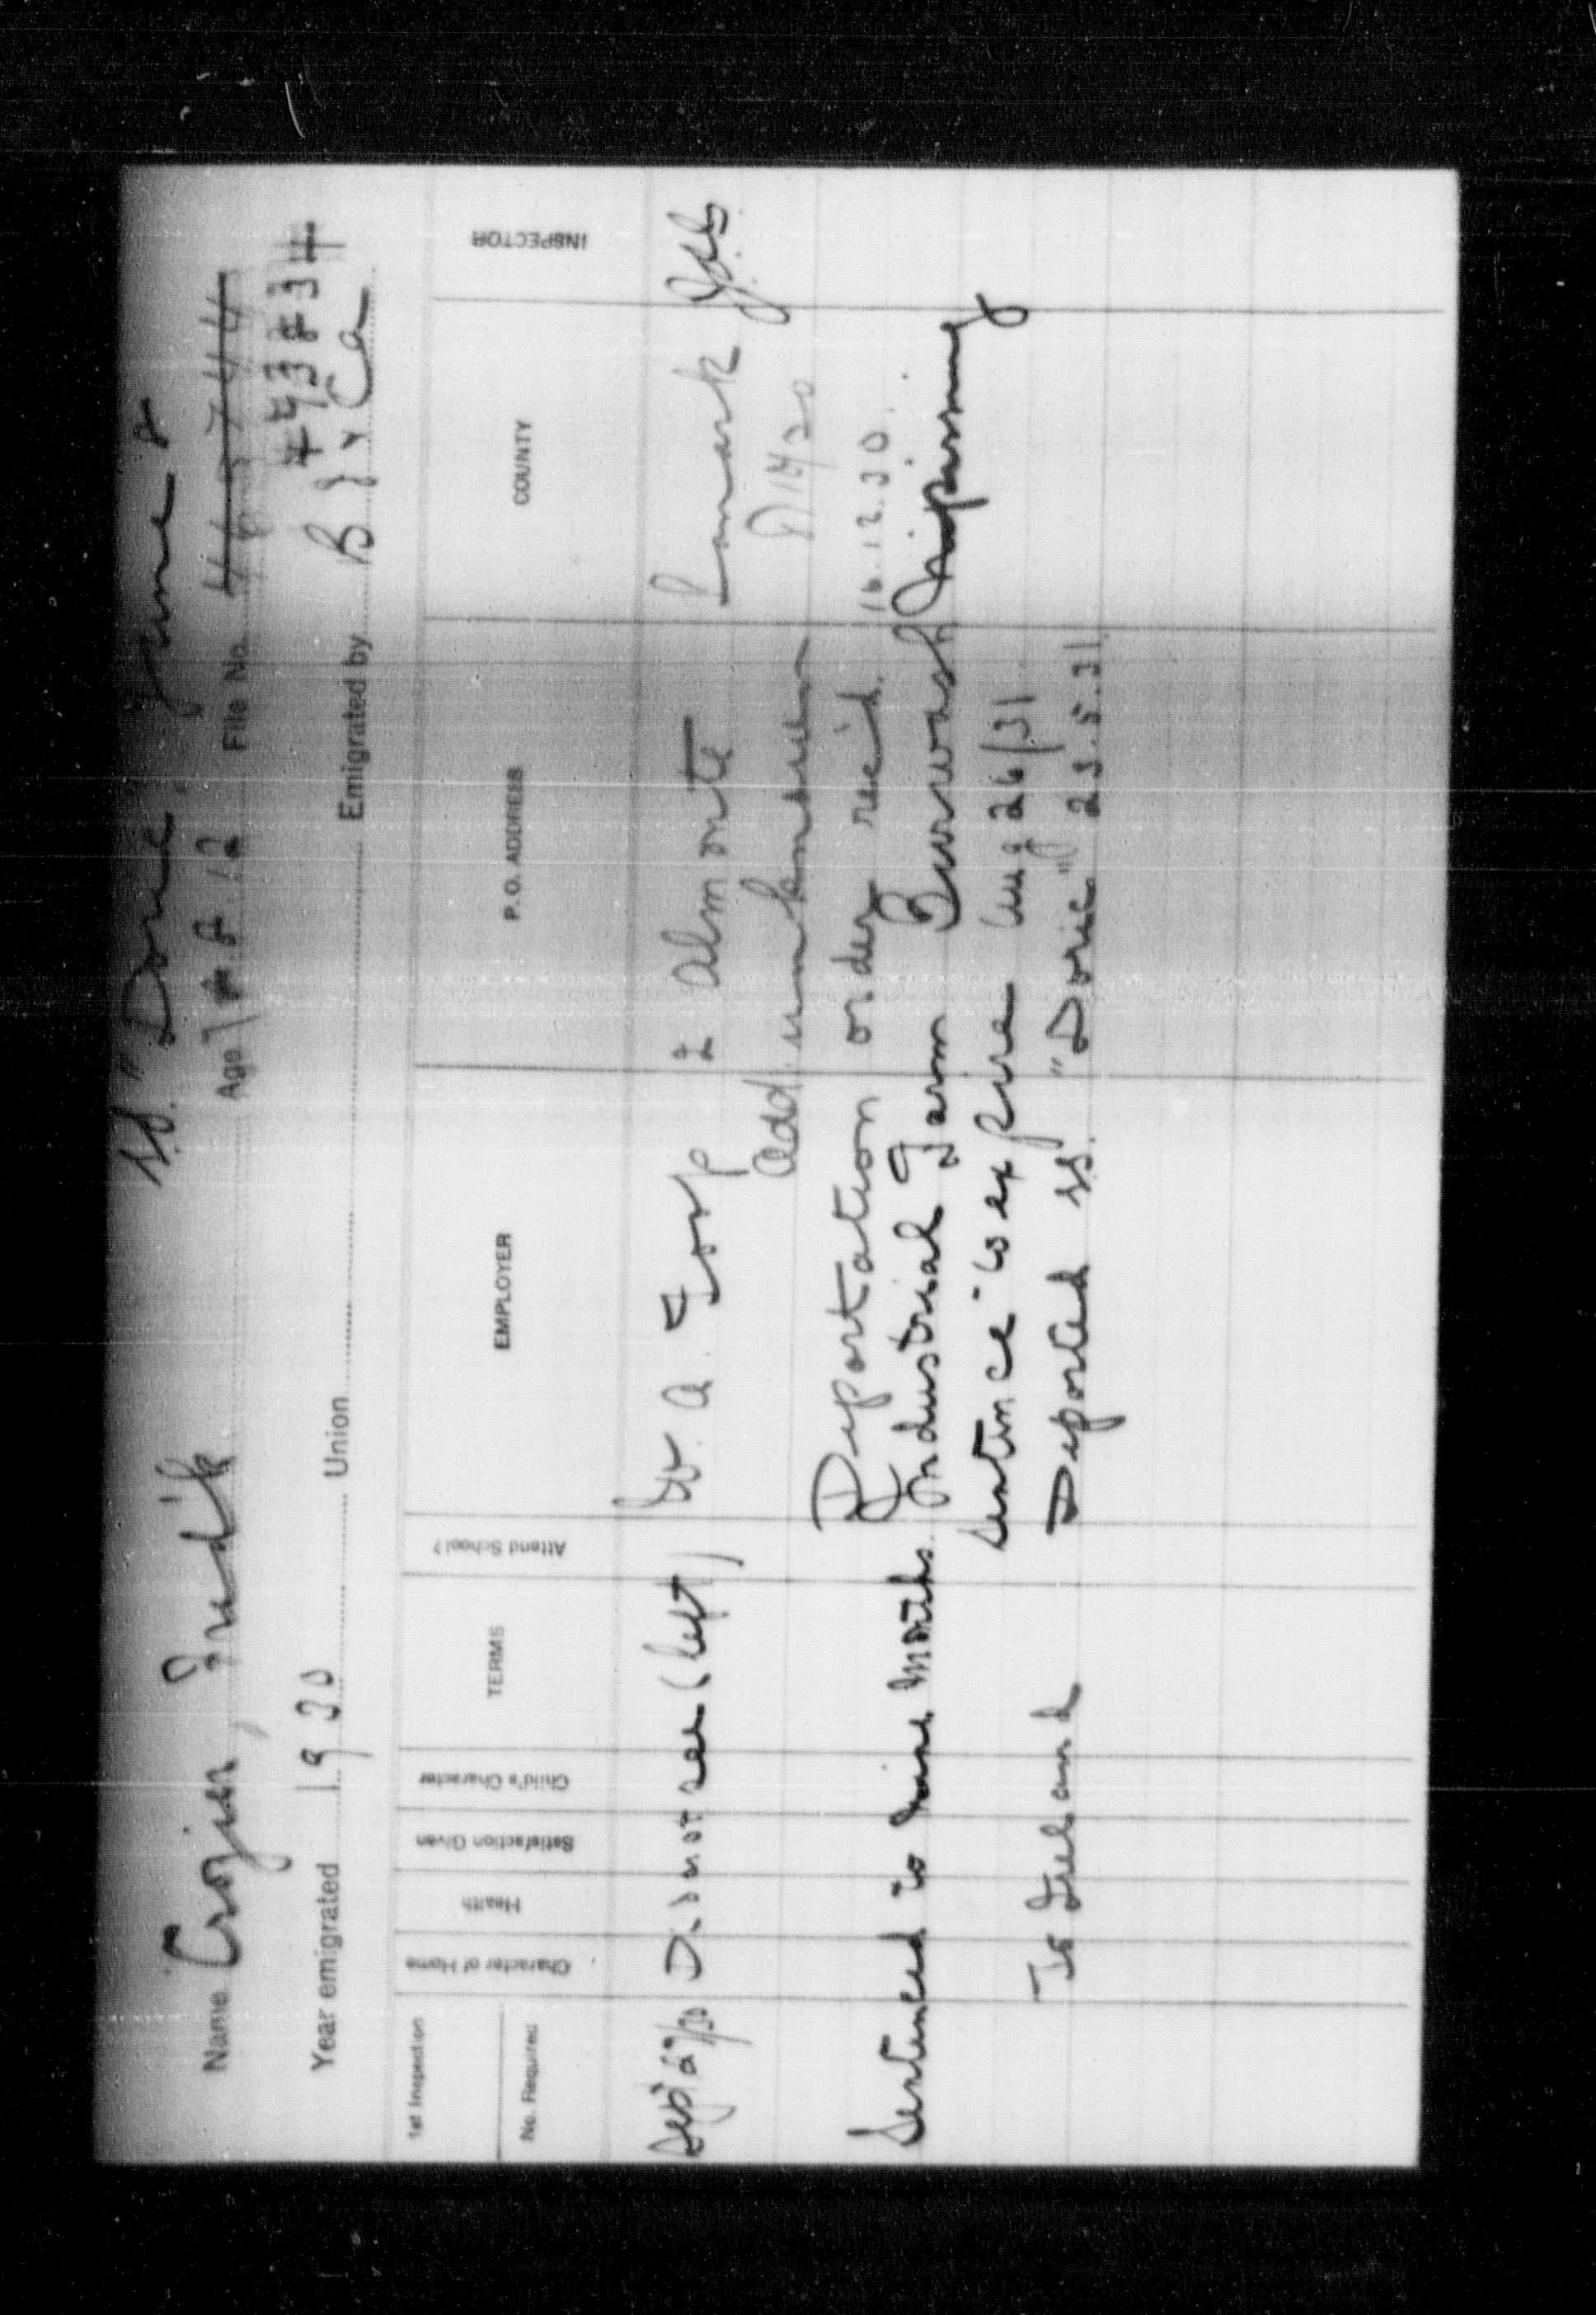 SS. "Doric" June 8
Name Crozier, Fred'k Age 7.8.12 File No.
Year emigrated 1930 Union Emigrated by B I x Ca
1st Inspection
No. Required
Character of Home
Health
Satisfaction Given
Child's Character
TERMS
Attend School?
EMPLOYER
P. O. ADDRESS
COUNTY
INSPECTOR
Sep 29/30 Did not see (left) W. A. 2 Almonte Lanark
Add. unknown
Deportation order rec'd. 16.12.30.
Sentenced to nine months. Industrial Farm Burwash Nipissing
Sentence to expire Aug 26/31
To Ireland Deported ss. "Doric" 23.5.31